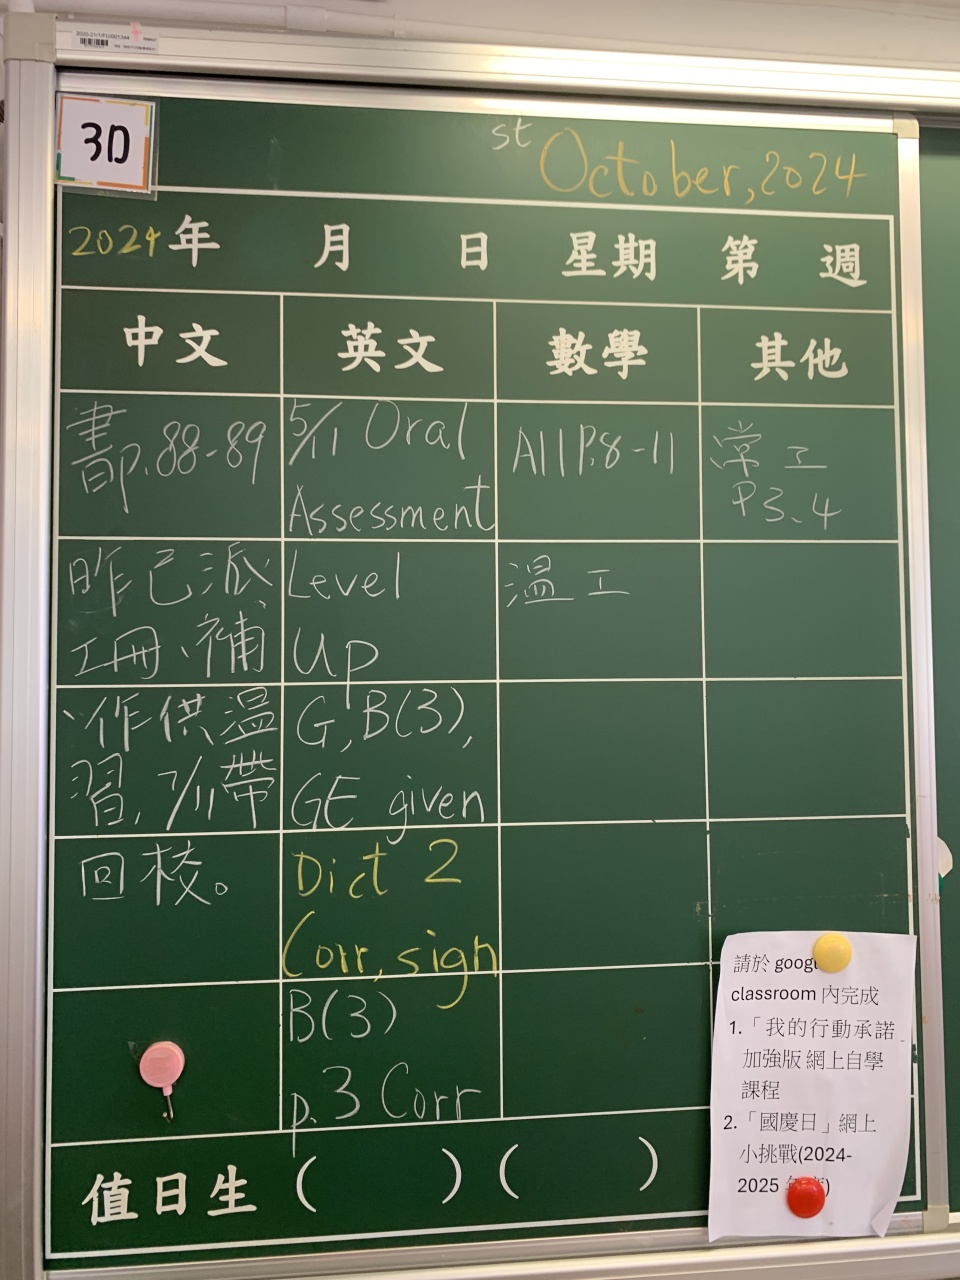 3D
st October, 2024
2024年 月 日 星期 第 週
中文 英文 數學 其他
書P.88-89
昨已派
工冊、補
作供溫
習,7/11帶
回校。
5/11 Oral
Assessment
Level
Up
G,B(3),
GE given
Dict 2
Corr,sign
B(3)
p.3 Corr
A11P.8-11
溫工
常工
P3、4
值日生 ( ) ( )
請於 goog
classroom 內完成
1.「我的行動承諾
加強版 網上自學
課程
2.「國慶日」網上
小挑戰(2024-
2025